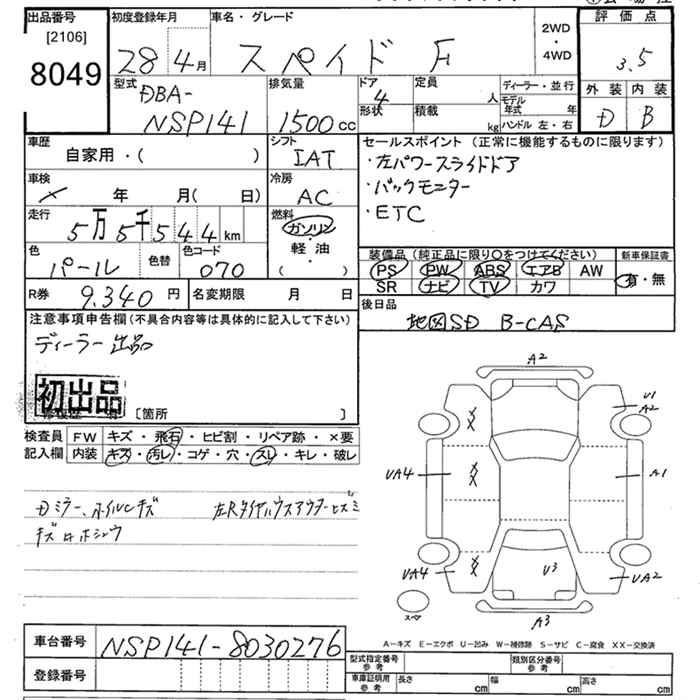 出品番号 初度登録年月 車名・グレード 2WD・4WD 評価点
[2106]
8049
28年4月 スペイド F 3.5
型式 排気量 ドア 定員 人 ディーラー・並行 外装 内装
DBA-
NSP141 1500cc 4 形状 積載 kg モデル年式 年 ハンドル 左・右 D B
車歴 シフト セールスポイント (正常に機能するものに限ります)
自家用・( ) IAT ・左パワースライドドア
車検 冷房 ・バックモニター
× 年 月( 日) AC ・ETC
走行 燃料
5万5千544km ガソリン・軽油・( )
色 色替 色コード 装備品 (純正品に限り○をつけてください) 新車保証書
パール 070 PS PW ABS エアB AW 有・無
SR ナビ TV カワ
R券 9,340円 名変期限 月 日 後日品
地図SD B-CAS
注意事項申告欄 (不具合内容等は具体的に記入して下さい)
ディーラー出品
初出品
〔箇所 〕
検査員記入欄 FW キズ・飛石・ヒビ割・リペア跡・×要
内装 キズ・汚レ・コゲ・穴・スレ・キレ・破レ
Dミラー、ホイルヒキズ 左Rタイヤハウスアウターヒズミ
キズ ホシュウ
A2
U1
A2
XX
UA4 XX A1
UA4 XX U3 UA2
スペア
A3
A-キズ E-エクボ U-凹み W-補修跡 S-サビ C-腐食 XX-交換済
車台番号 NSP141-8030276
登録番号
型式指定番号 参考 類別区分番号 参考
車庫証明用 参考 長さ cm 幅 cm 高さ cm